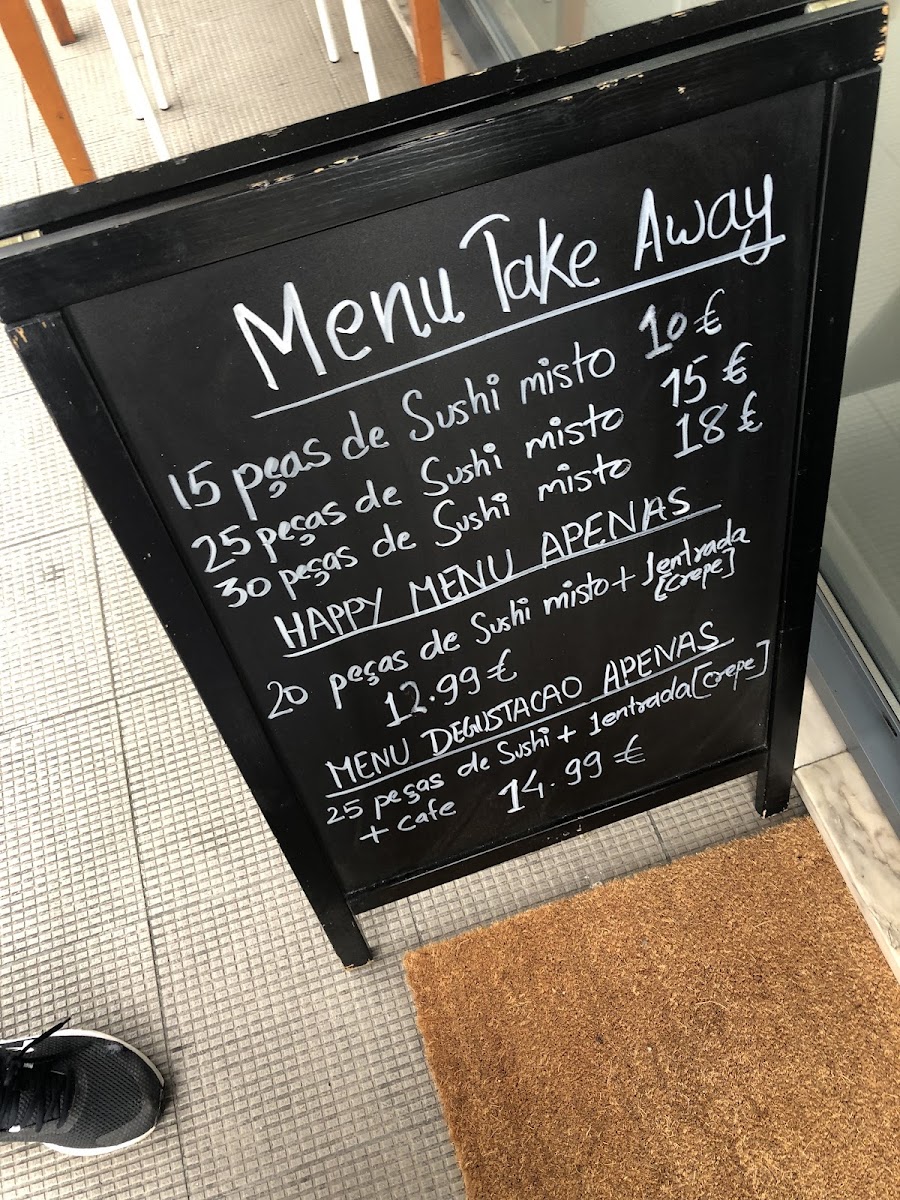 Menu Take Away
15 peças de Sushi misto 10 €
25 peças de Sushi misto 15 €
30 peças de Sushi misto 18 €
HAPPY MENU APENAS
20 peças de Sushi misto + 1 entrada
[crepe]
12.99 €
MENU DEGUSTACAO APENAS
25 peças de Sushi + 1 entrada [crepe]
+ cafe 14.99 €